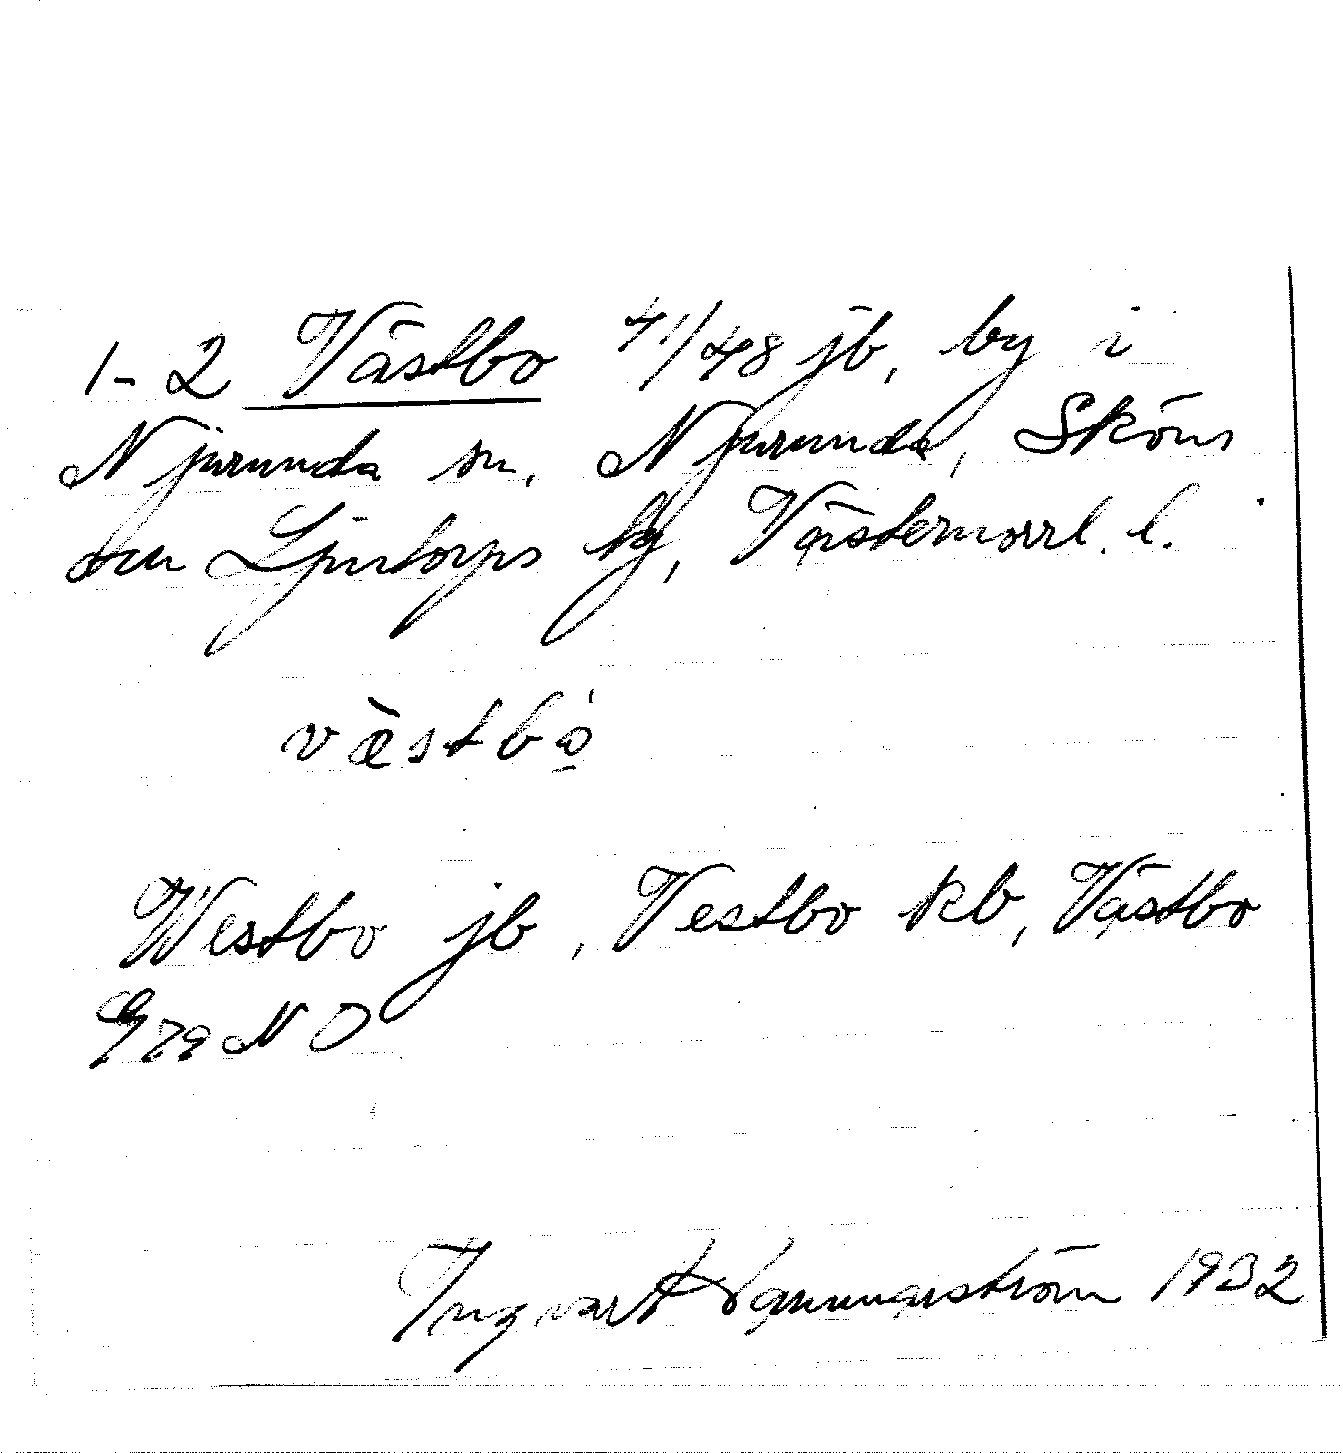 1-2 Västbo 41/48 jb, by i
Njurunda sn, Njurunda, Sköns
och Ljustorps tg, Västernorrl. l.
væ̀stbo̱̍
Westbo jb, Vestbo kb, Västbo
NO
Ingvart Hammarström 1932